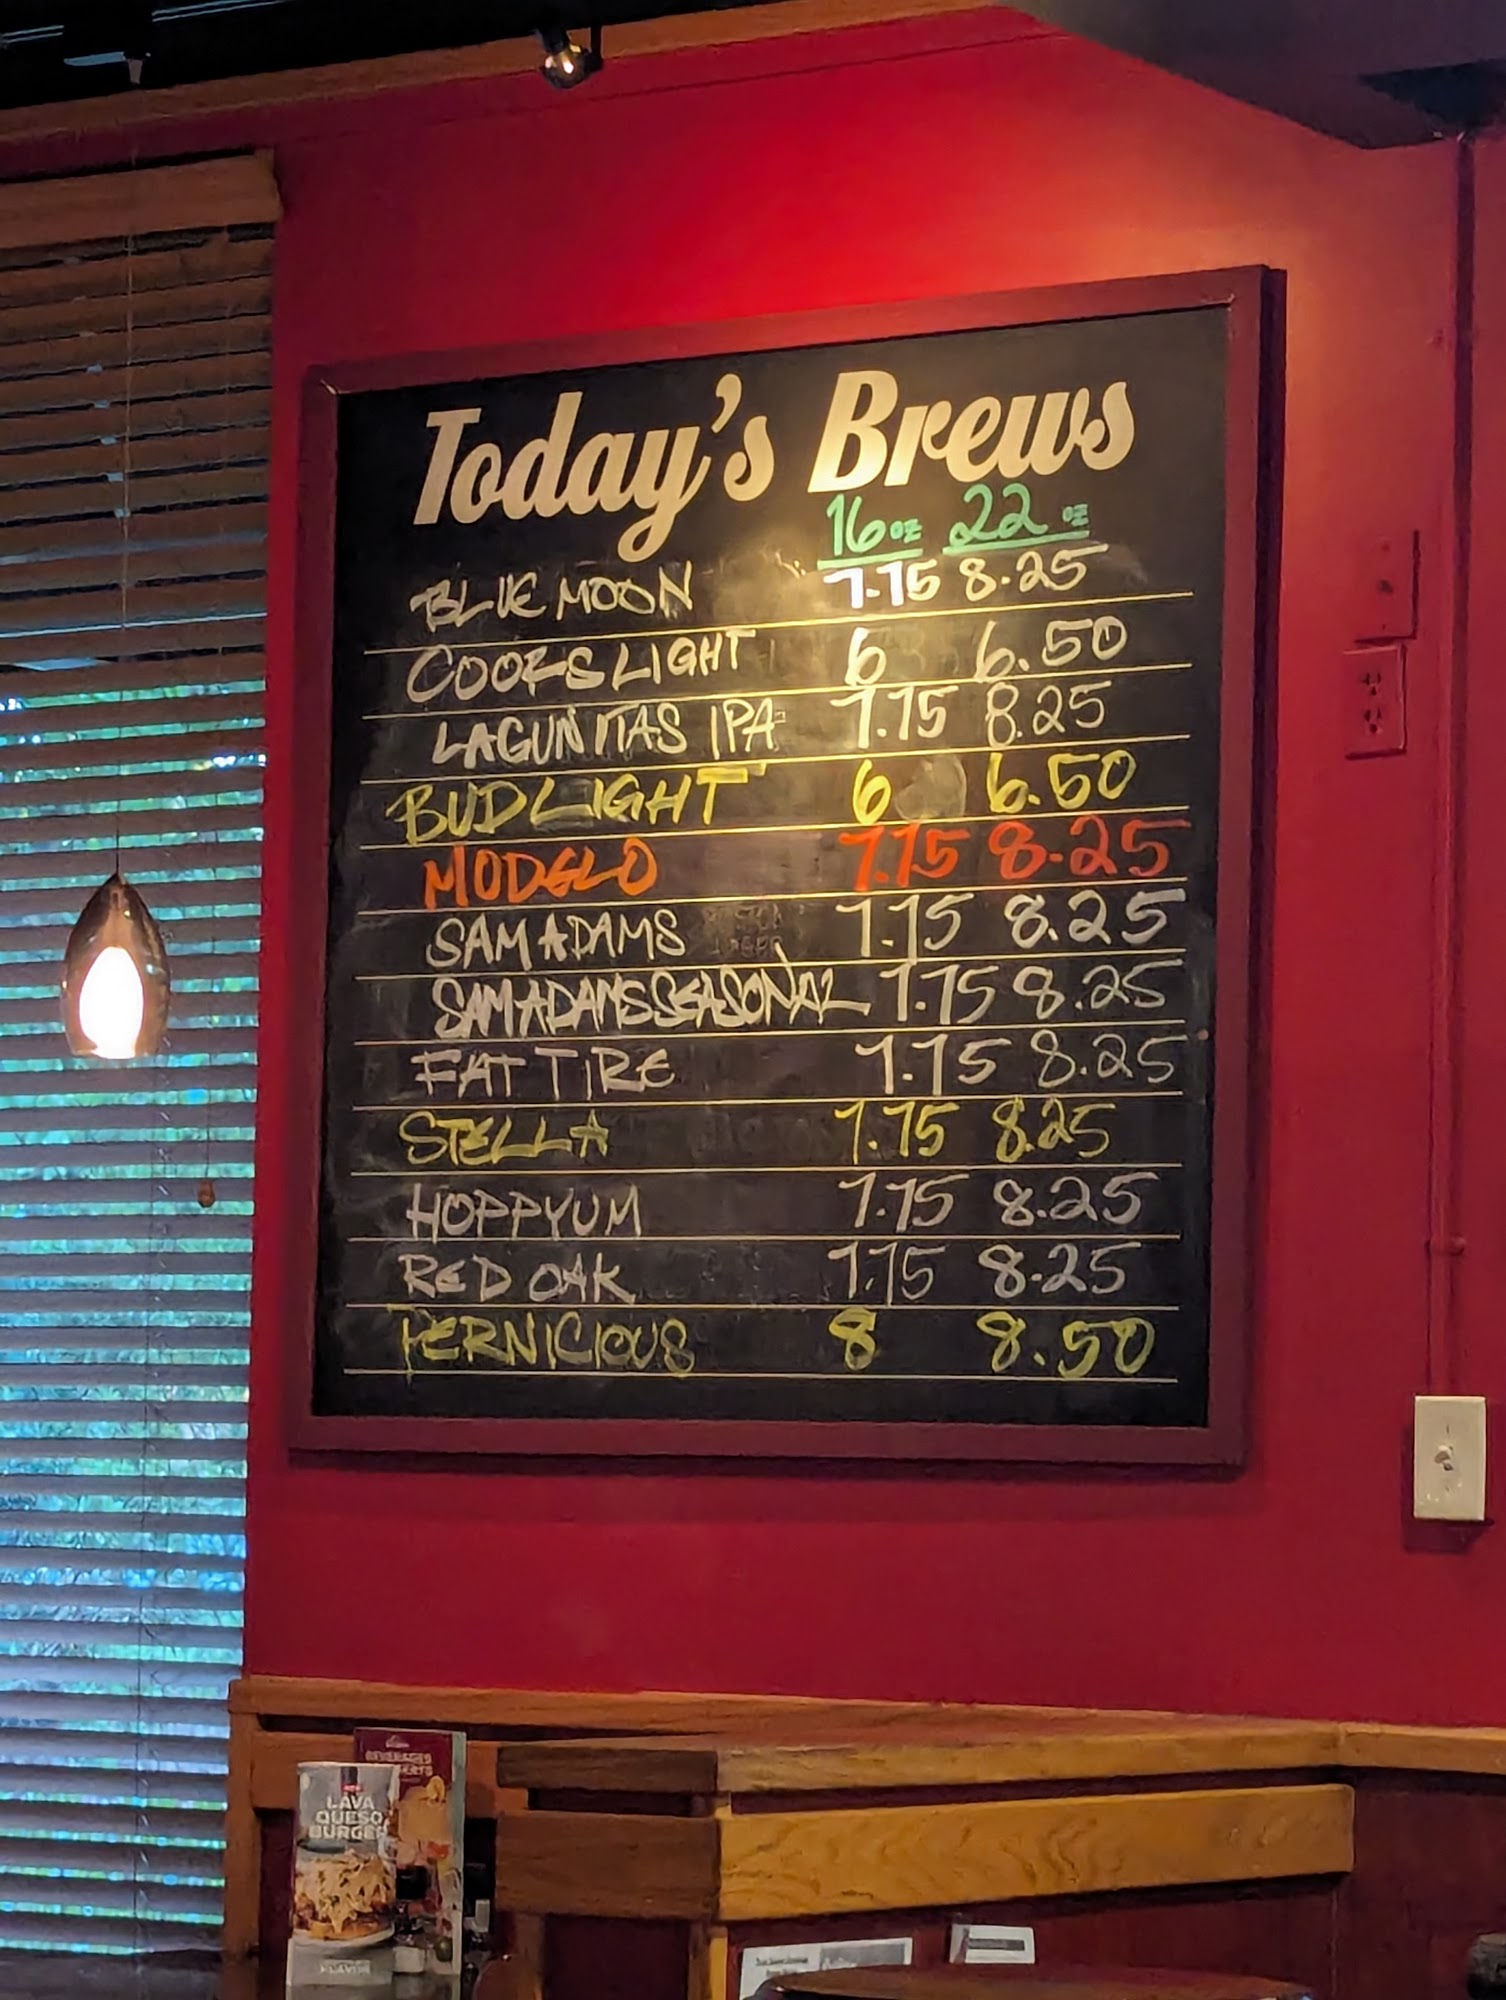 Today's Brews
16 oz 22 oz
BLUE MOON 7.75 8.25
COORS LIGHT 6 6.50
LAGUNITAS IPA 7.75 8.25
BUD LIGHT 6 6.50
MODELO 7.75 8.25
SAM ADAMS 7.75 8.25
SAM ADAMS SEASONAL 7.75 8.25
FAT TIRE 7.75 8.25
STELLA 7.75 8.25
HOPPYUM 7.75 8.25
RED OAK 7.75 8.25
PERNICIOUS 8 8.50
BEVERAGES
LAVA
QUESO
BURGER
FLAVOR